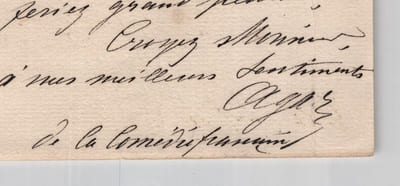 feriez grand plaisir,
Croyez Monsieur,
à mes meilleurs sentiments
Agar
de la Comédie française